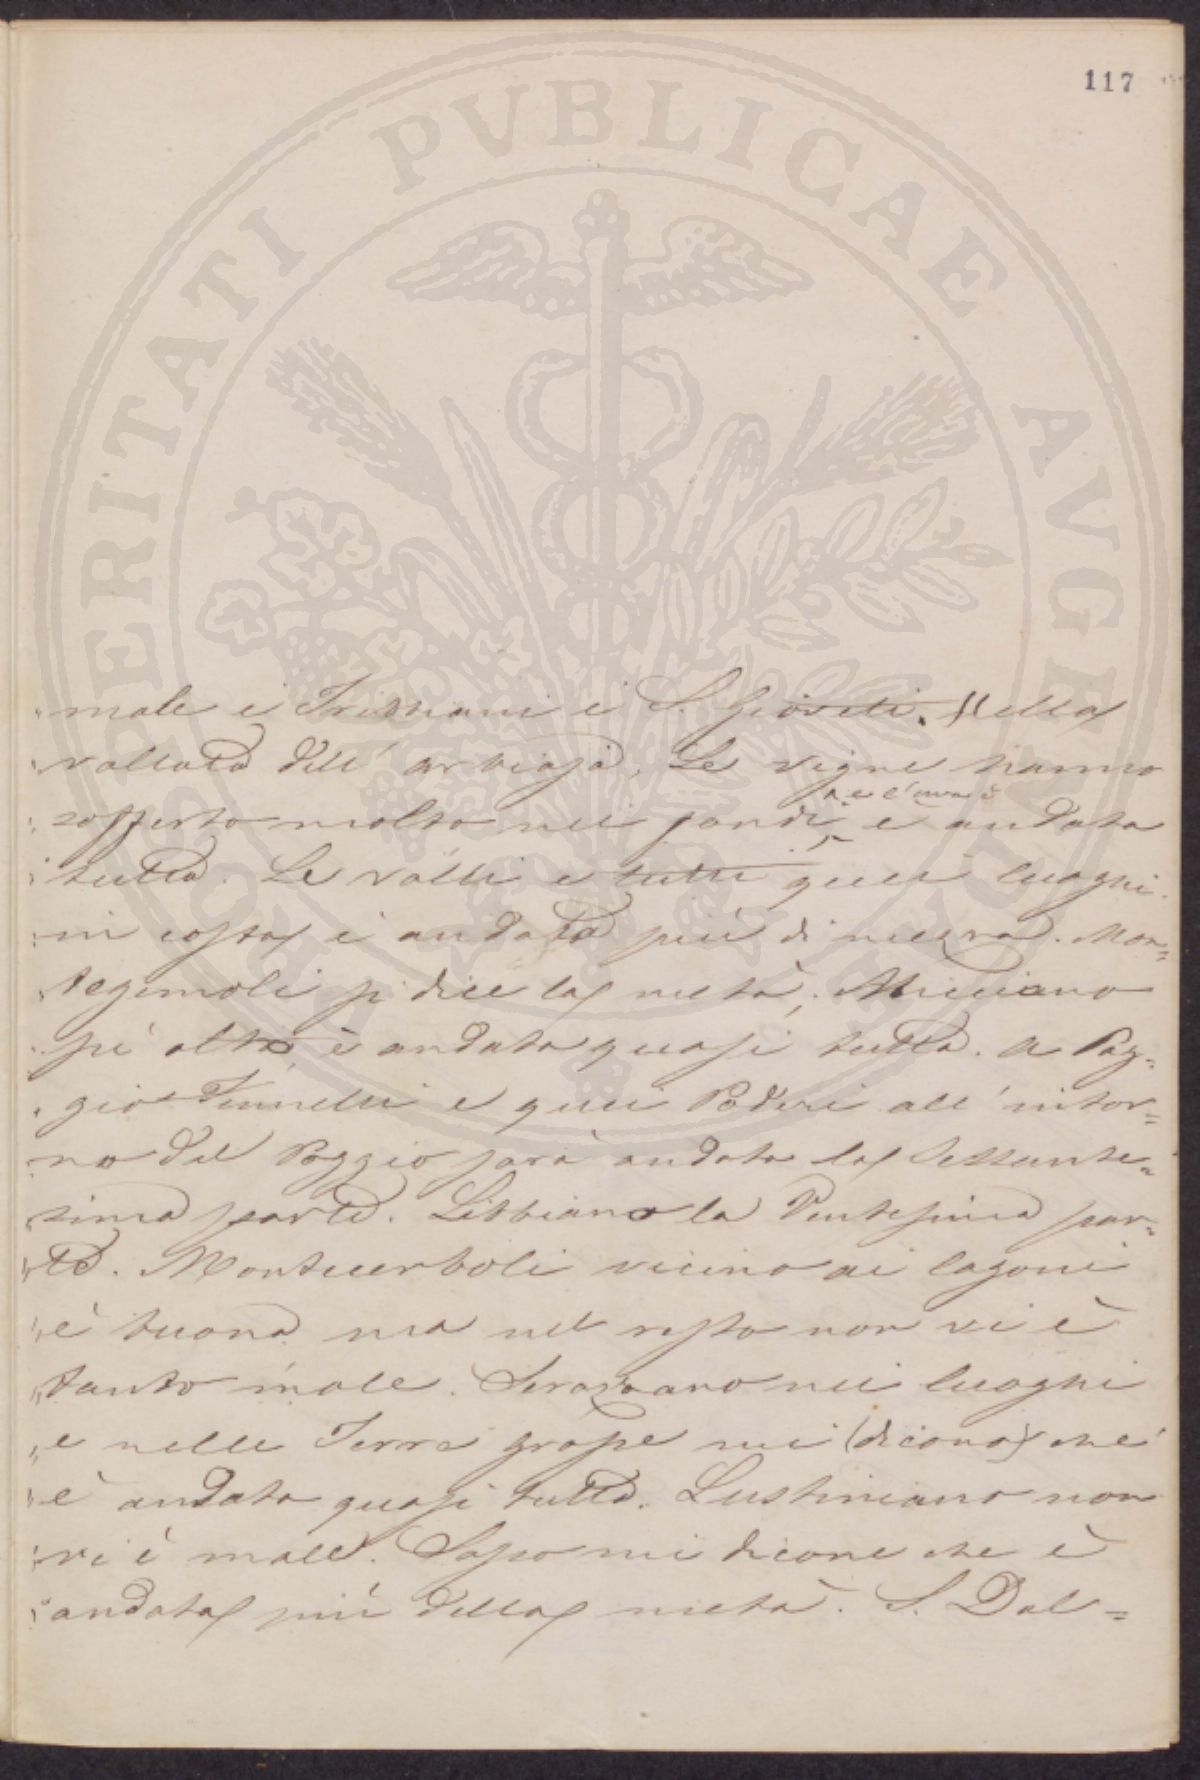 117
PROSPERITATI PUBLICAE AUGENDAE
" male i
" vallata dell' Le vigne hanno
e l'uva è
" sofferto molto nei fondi, e andata
" tutta. Le valli e tutti quei luoghi
" in costa è andata più di mezza. Mon=
" tegemoli si dice la metà; Micciano
" pi alto è andata quasi tutta. A Pog=
" gio e quei Poderi all'intor=
" no del Poggio sarà andata la sessante=
" sima parte. Libbiano la Ventesima par=
" te. Montecerboli vicino ai lagoni
" è buona ma nel resto non vi è
" tanto male. Serazzano nei luoghi
" e nelle Terre grosse mi (dicono) che
" è andata quasi tutta. Lustiniano non
" vi è male. Sasso mi dicone che è
" andata più della metà. S. Dal=